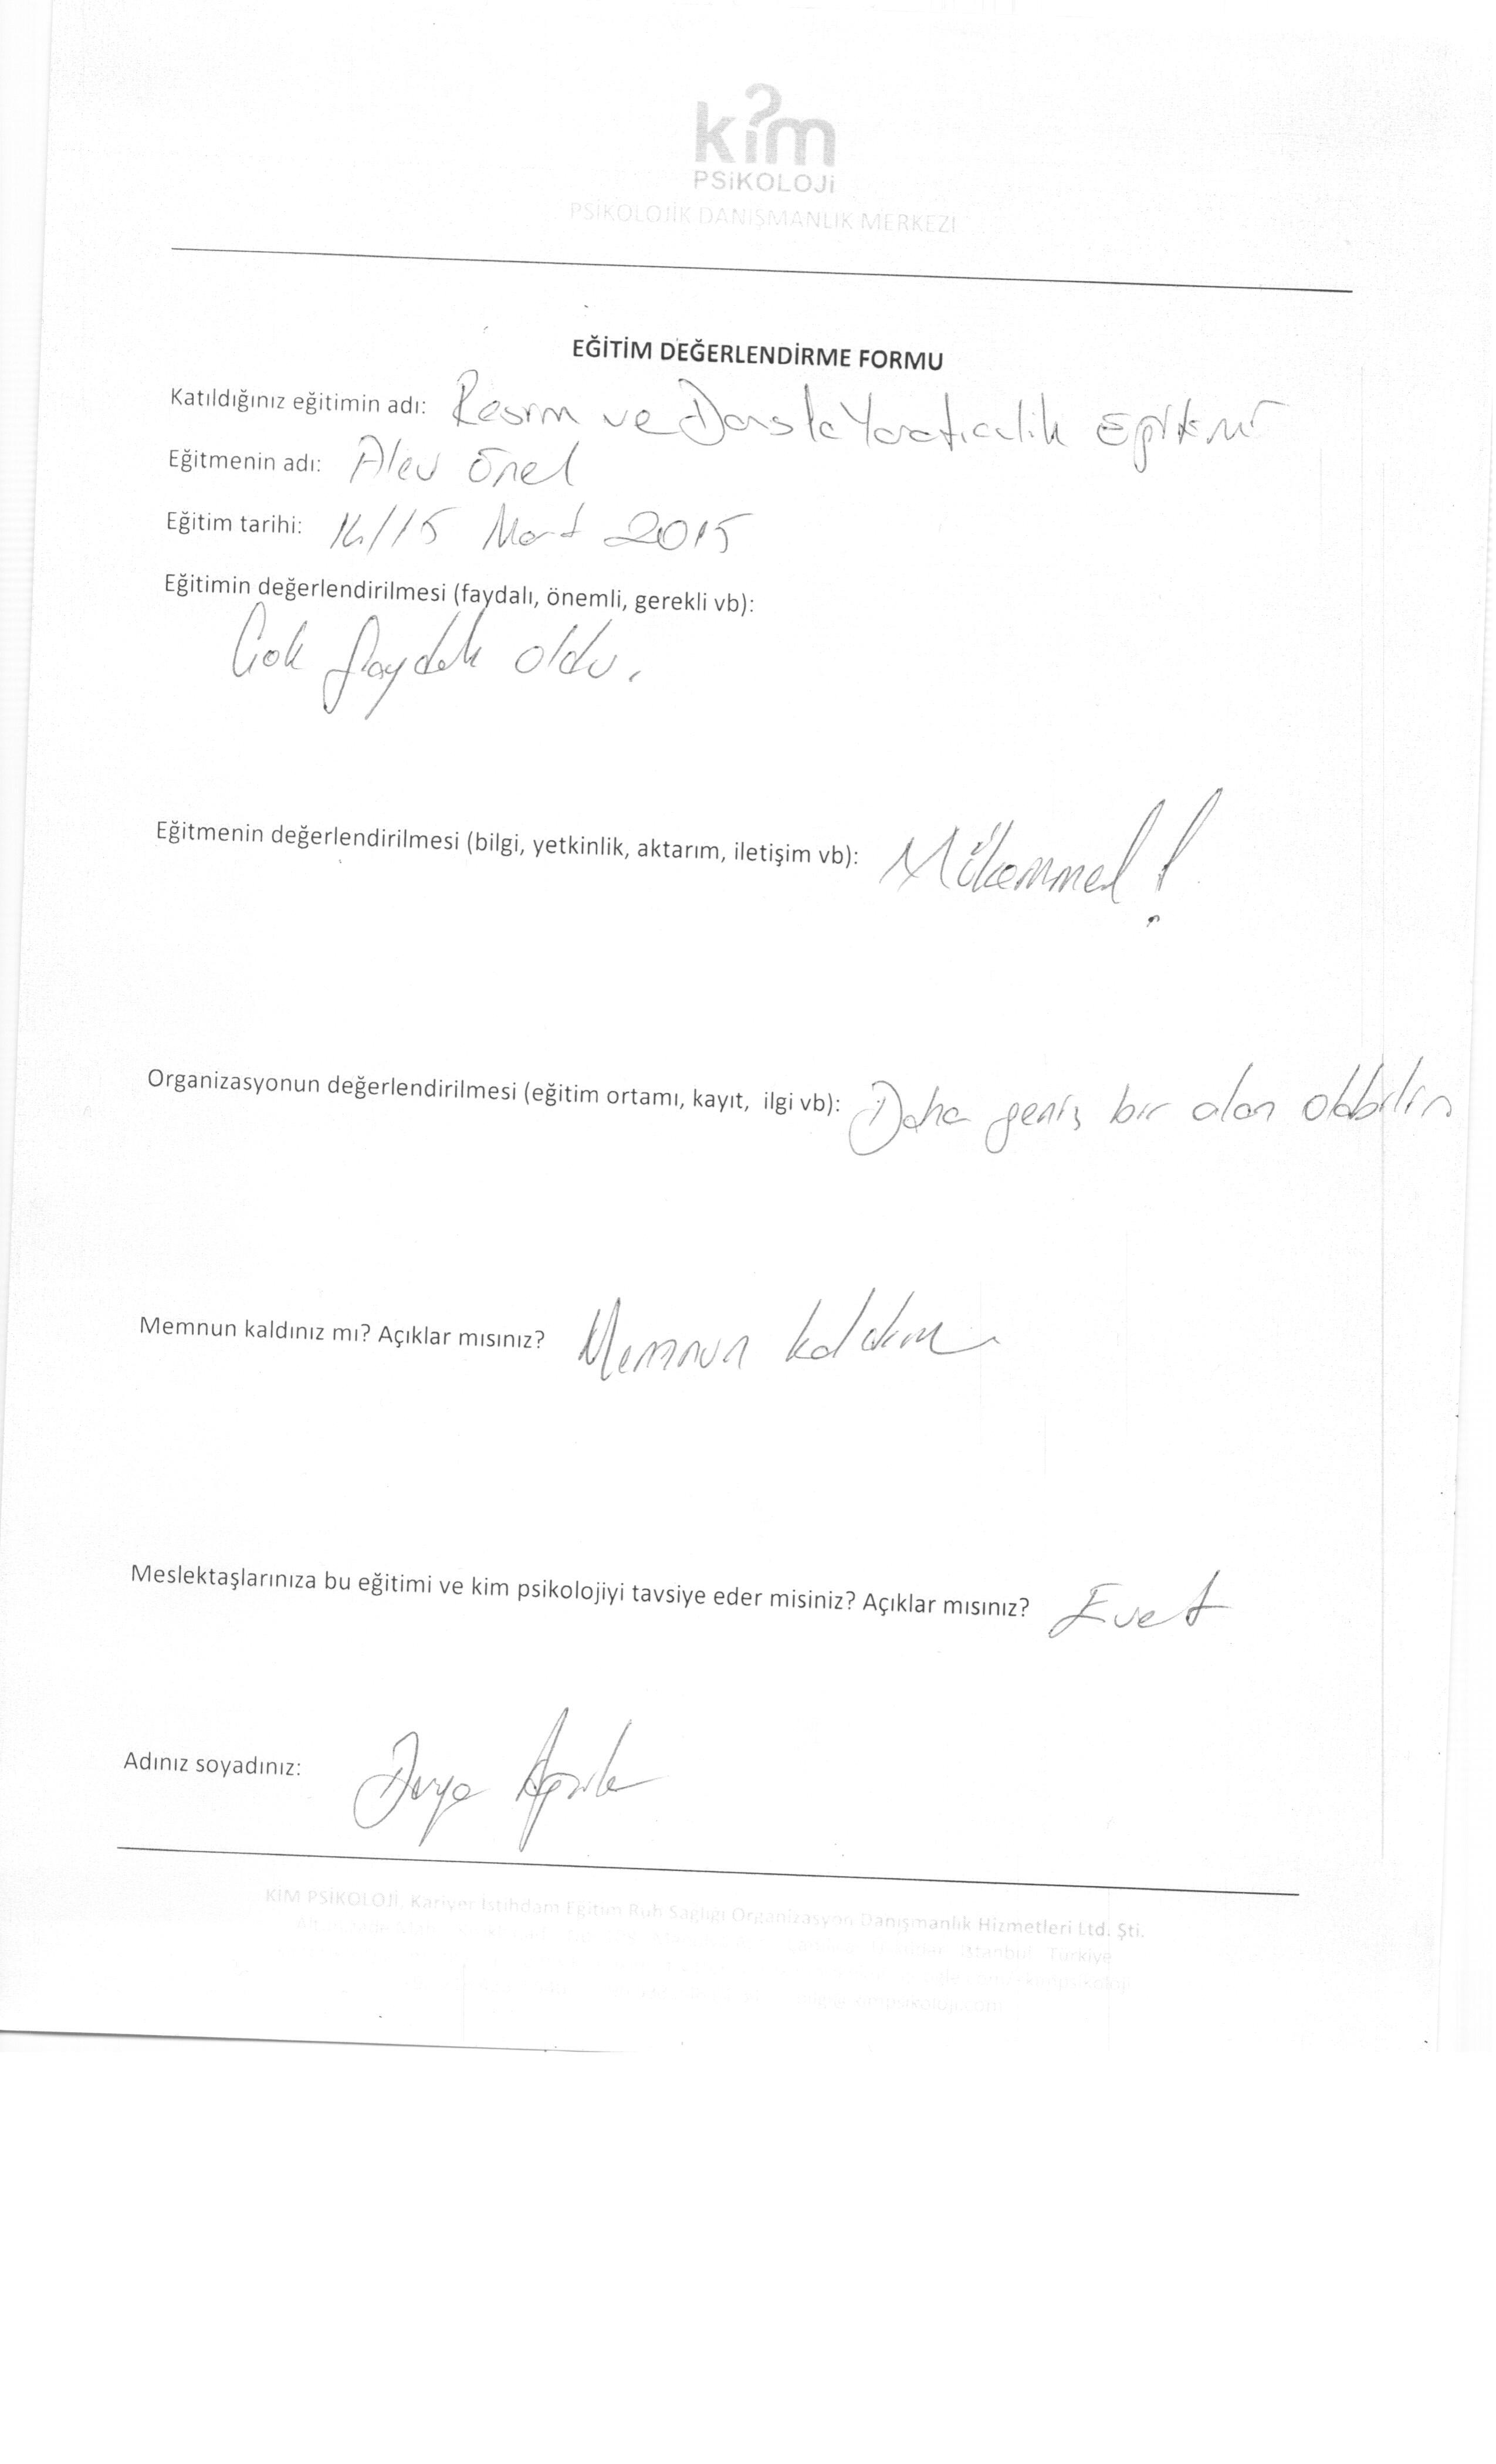 kim
PSiKOLOJi
PSİKOLOJİK DANIŞMANLIK MERKEZİ
EĞİTİM DEĞERLENDİRME FORMU
Katıldığınız eğitimin adı: Resim ve Dansla Yaratıcılık Eğitimi
Eğitmenin adı: Alev Önel
Eğitim tarihi: 14/15 Mart 2015
Eğitimin değerlendirilmesi (faydalı, önemli, gerekli vb):
Çok faydalı oldu.
Eğitmenin değerlendirilmesi (bilgi, yetkinlik, aktarım, iletişim vb): Mükemmel!
Organizasyonun değerlendirilmesi (eğitim ortamı, kayıt, ilgi vb): Daha geniş bir alan olabilir
Memnun kaldınız mı? Açıklar mısınız? Memnun kaldım
Meslektaşlarınıza bu eğitimi ve kim psikolojiyi tavsiye eder misiniz? Açıklar mısınız? Evet
Adınız soyadınız: Derya
KİM PSİKOLOJİ, Kariyer İstihdam Eğitim Ruh Sağlığı Organizasyon Danışmanlık Hizmetleri Ltd. Şti.
İstanbul Türkiye